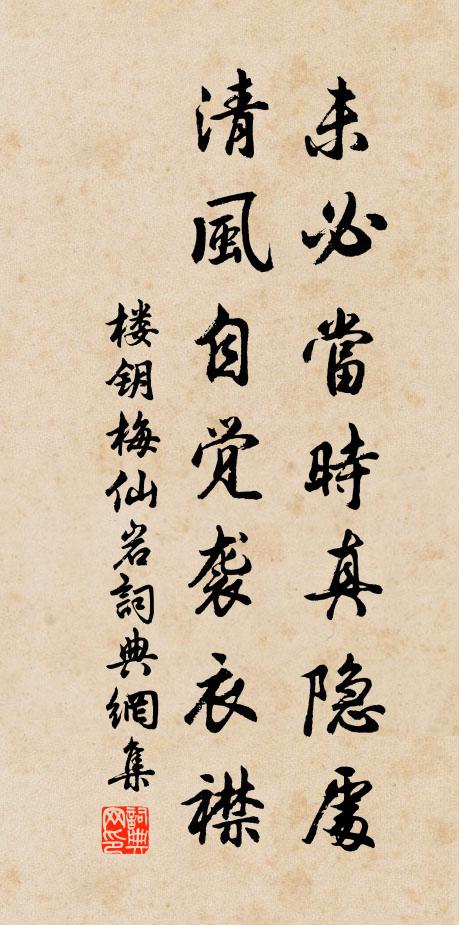 未必當時真隐處
清風自觉袭衣襟
楼钥梅仙岩詞典網集
詞典网印